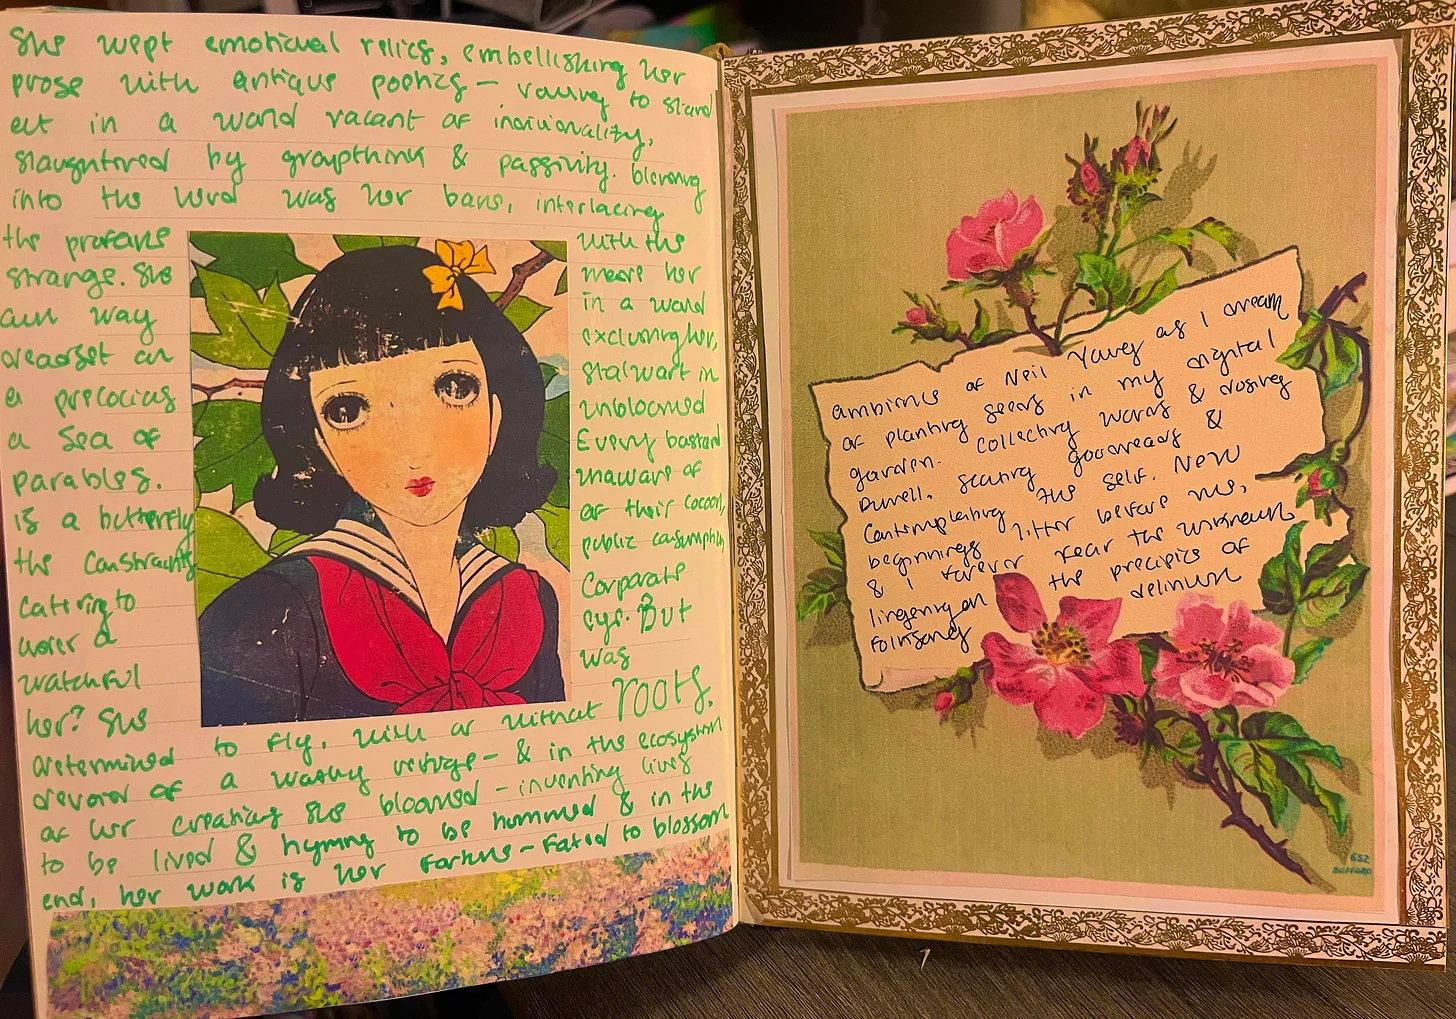 She wept emotional relics, embellishing her
prose with antique poetics – vowing to stand
out in a world vacant of individuality,
slaughtered by groupthink & passivity. blending
into the herd was her bane, interlacing
the profane with the
strange. She made her
own way in a world
deadset on excluding her,
a precocious stalwart in
a sea of unbloomed
parables. Every bastard
is a butterfly unaware of
the constraints of their cocoon,
catering to public consumption
under a corporate
watchful eye. But
her? She was
determined to fly, with or without roots,
devoid of a – & in the ecosystem
of her creating she bloomed – inventing lives
to be lived & hymns to be hummed & in the
end, her work is her fortune – fated to blossom
ambience of Neil Young as I dream
of planting seeds in my digital
garden. Collecting words &
Durrell, goodreads &
contemplating the self. New
beginnings litter before me,
& I forever fear the unknown
lingering on the precipice of
folksong delirium
652